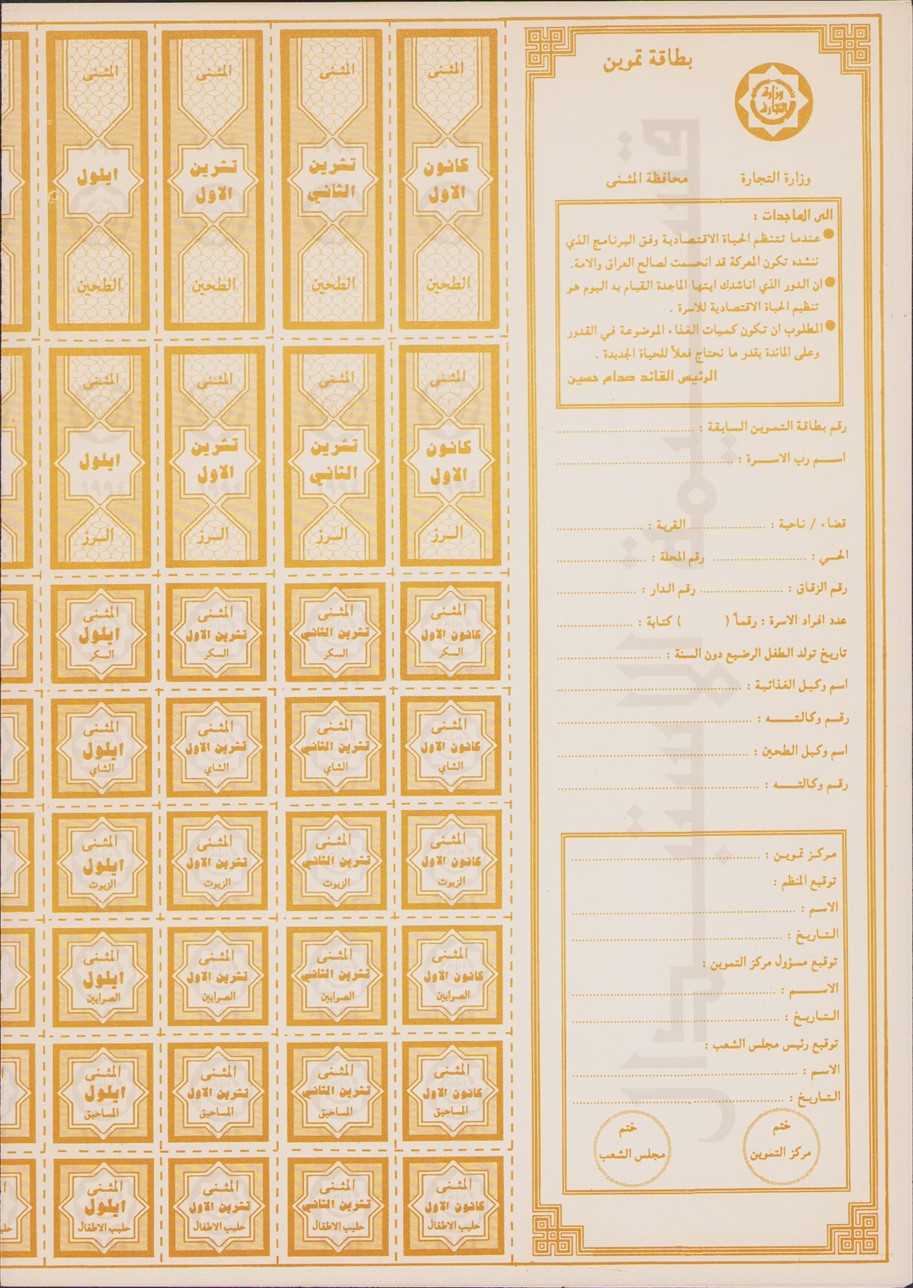 بطاقة تموين
وزارة التجارة
وزارة التجارة
محافظة المثنى
الى الماجدات :
عندما تنتظم الحياة الاقتصادية وفق البرنامج الذي
ننشده تكون المعركة قد انحسمت لصالح العراق والامة.
ان الدور الذي اناشدك ايتها الماجدة القيام به اليوم هو
تنظيم الحياة الاقتصادية للاسرة .
المطلوب ان تكون كميات الغذاء الموضوعة في القدور
وعلى المائدة بقدر ما نحتاج فعلاً للحياة الجديدة .
الرئيس القائد صدام حسين
رقم بطاقة التموين السابقة :
اسم رب الاسرة :
قضاء / ناحية : القرية :
الحي : رقم المحلة :
رقم الزقاق : رقم الدار :
عدد افراد الاسرة : رقماً ( ) كتابة :
تاريخ تولد الطفل الرضيع دون السنة :
اسم وكيل الغذائية :
رقم وكالته :
اسم وكيل الطحين :
رقم وكالته :
مركز تموين :
توقيع المنظم :
الاسم :
التاريخ :
توقيع مسؤول مركز التموين :
الاسم :
التاريخ :
توقيع رئيس مجلس الشعب :
الاسم :
التاريخ :
ختم
مركز التموين
ختم
مجلس الشعب
قسيمة الاستبدال
المثنى المثنى المثنى المثنى
كانون الاول تشرين الثاني تشرين الاول ايلول
الطحين الطحين الطحين الطحين
المثنى المثنى المثنى المثنى
كانون الاول تشرين الثاني تشرين الاول ايلول
١٩٩٤ ١٩٩٤ ١٩٩٤ ١٩٩٤
الرز الرز الرز الرز
المثنى المثنى المثنى المثنى
كانون الاول تشرين الثاني تشرين الاول ايلول
السكر السكر السكر السكر
المثنى المثنى المثنى المثنى
كانون الاول تشرين الثاني تشرين الاول ايلول
الشاي الشاي الشاي الشاي
المثنى المثنى المثنى المثنى
كانون الاول تشرين الثاني تشرين الاول ايلول
الزيوت الزيوت الزيوت الزيوت
المثنى المثنى المثنى المثنى
كانون الاول تشرين الثاني تشرين الاول ايلول
الصوابين الصوابين الصوابين الصوابين
المثنى المثنى المثنى المثنى
كانون الاول تشرين الثاني تشرين الاول ايلول
المساحيق المساحيق المساحيق المساحيق
المثنى المثنى المثنى المثنى
كانون الاول تشرين الثاني تشرين الاول ايلول
حليب الاطفال حليب الاطفال حليب الاطفال حليب الاطفال